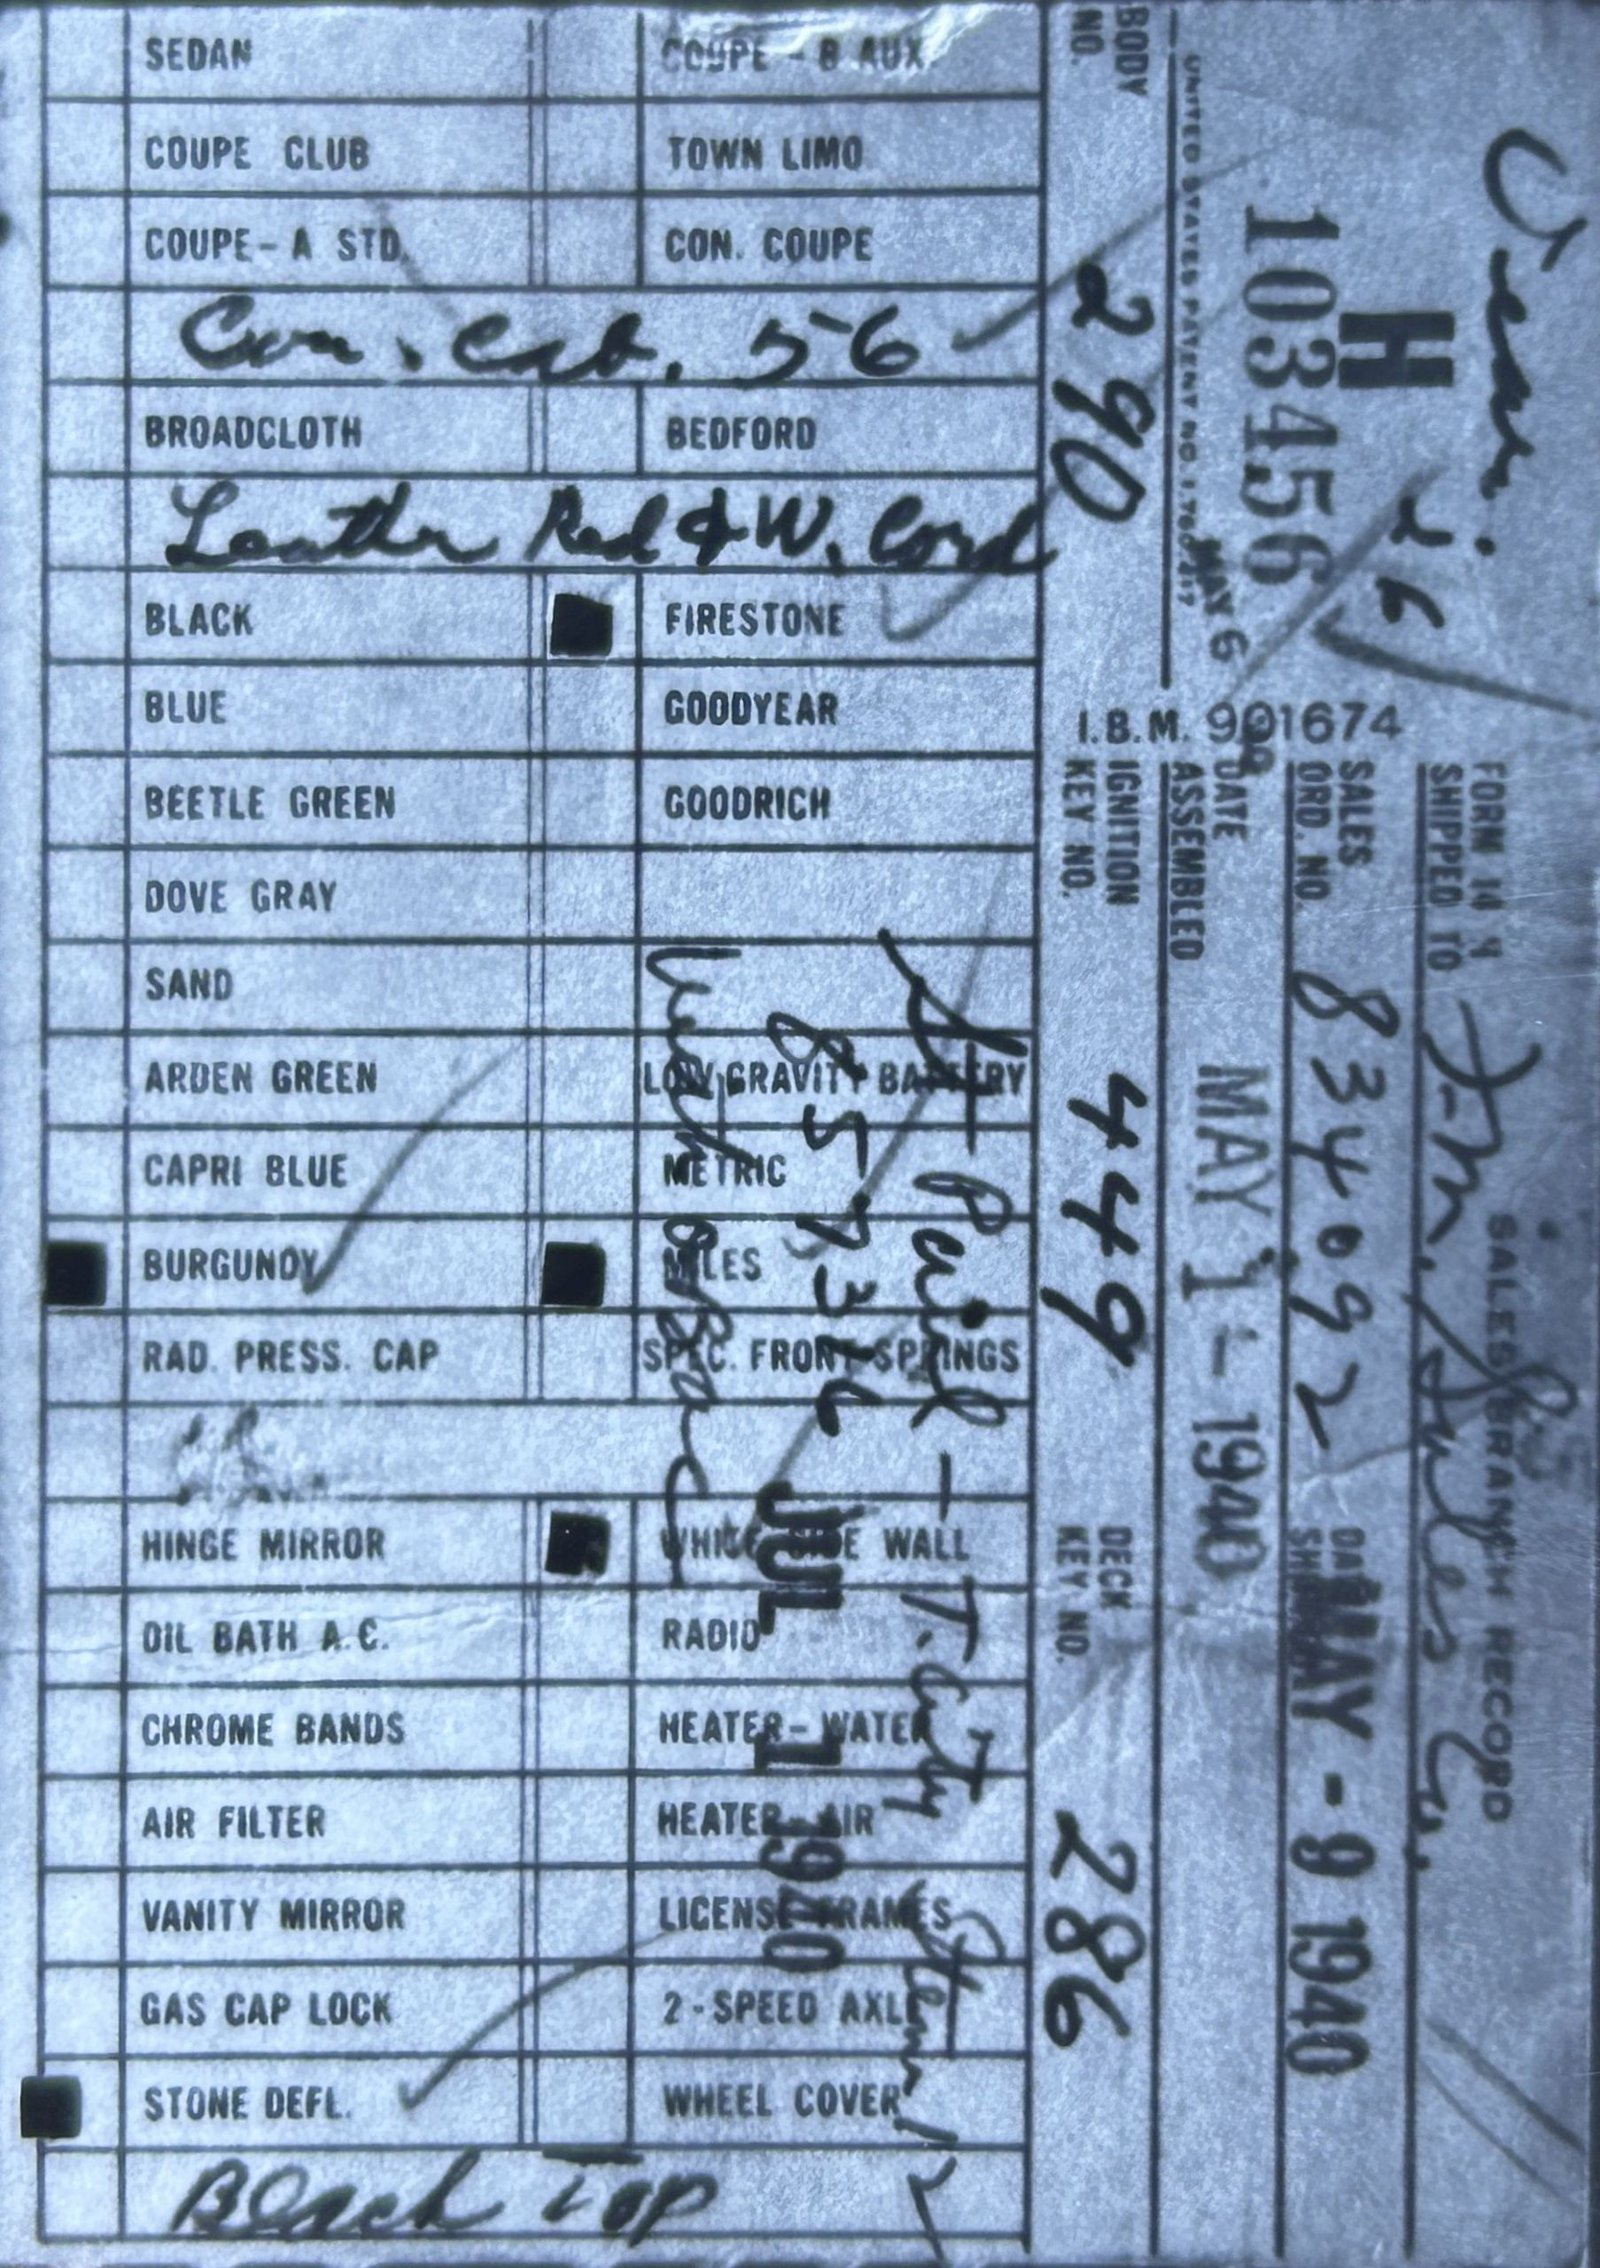 SEDAN
COUPE - B AUX.
COUPE CLUB
TOWN LIMO
COUPE - A STD.
CON. COUPE
Con. Cab. 56
BROADCLOTH
BEDFORD
Leather Red & W. Cord
BLACK
FIRESTONE
BLUE
GOODYEAR
BEETLE GREEN
GOODRICH
DOVE GRAY
SAND
ARDEN GREEN
LOW GRAVITY BATTERY
CAPRI BLUE
METRIC
BURGUNDY
MILES
RAD. PRESS. CAP
SPEC. FRONT SPRINGS
HINGE MIRROR
WHITE SIDE WALL
OIL BATH A.C.
RADIO
CHROME BANDS
HEATER - WATER
AIR FILTER
HEATER - AIR
VANITY MIRROR
LICENSE FRAMES
GAS CAP LOCK
2 - SPEED AXLE
STONE DEFL.
WHEEL COVER
Black Top
I.B.M. 901674
SALES BRANCH RECORD
FORM 14
SHIPPED TO
Sales Co.
H
26
103456
SALES ORD. NO. 834092
MAY - 9 1940
UNITED STATES PATENT NO.
MAY 6
DATE ASSEMBLED MAY 1 - 1940
BODY NO. 290
IGNITION KEY NO. 449
DECK KEY NO. 286
St Paul - T. City
85
JUL 1 1940